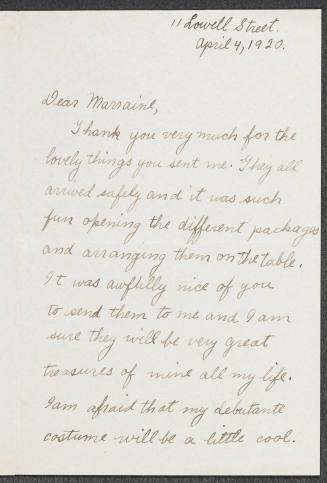 11 Lowell Street.
April 4, 1920.
Dear Marraine,
Thank you very much for the
lovely things you sent me. They all
arrived safely and it was such
fun opening the different packages
and arranging them on the table.
It was awfully nice of you
to send them to me and I am
sure they will be very great
treasures of mine all my life.
I am afraid that my debutante
costume will be a little cool.